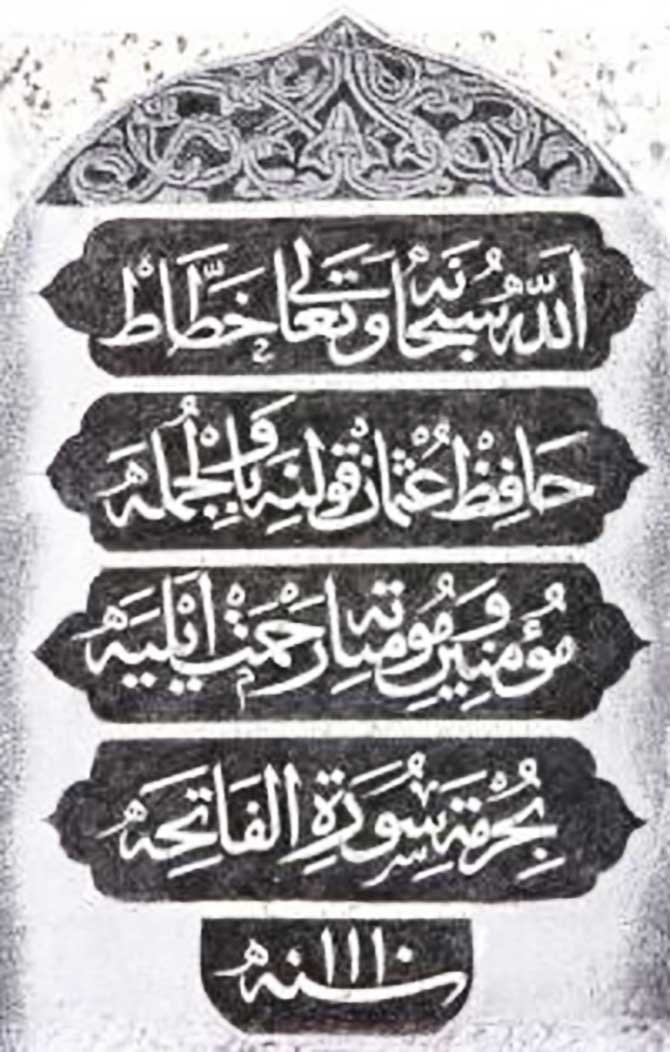 الله سبحانه وتعالى خطاط
حافظ عثمان قولنه وبالجمله
مؤمنين و مومناته رحمت ايليه
بحرمة سورة الفاتحه
سنه ١١١٠